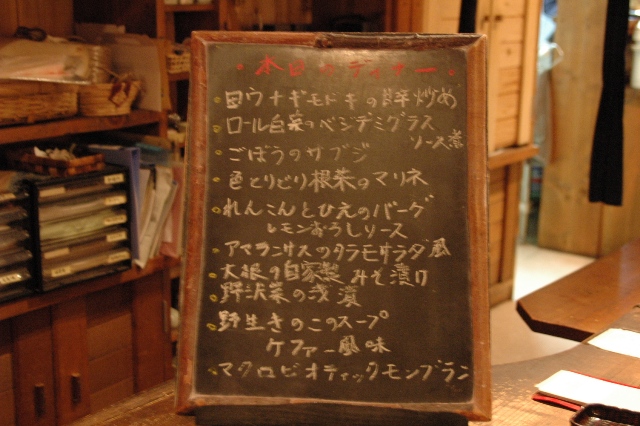 ・本日のディナー・
・田ウナギモドキの鮮炒め
・ロール白菜のベジデミグラス
ソース煮
・ごぼうのサブジ
・色とりどり根菜のマリネ
・れんこんとひえのバーグ
レモンおろしソース
・アマランサスのタラモサラダ風
・大根の自家製みそ漬け
・野沢菜の浅漬
・野生きのこのスープ
ケファー風味
・マクロビオティックモンブラン